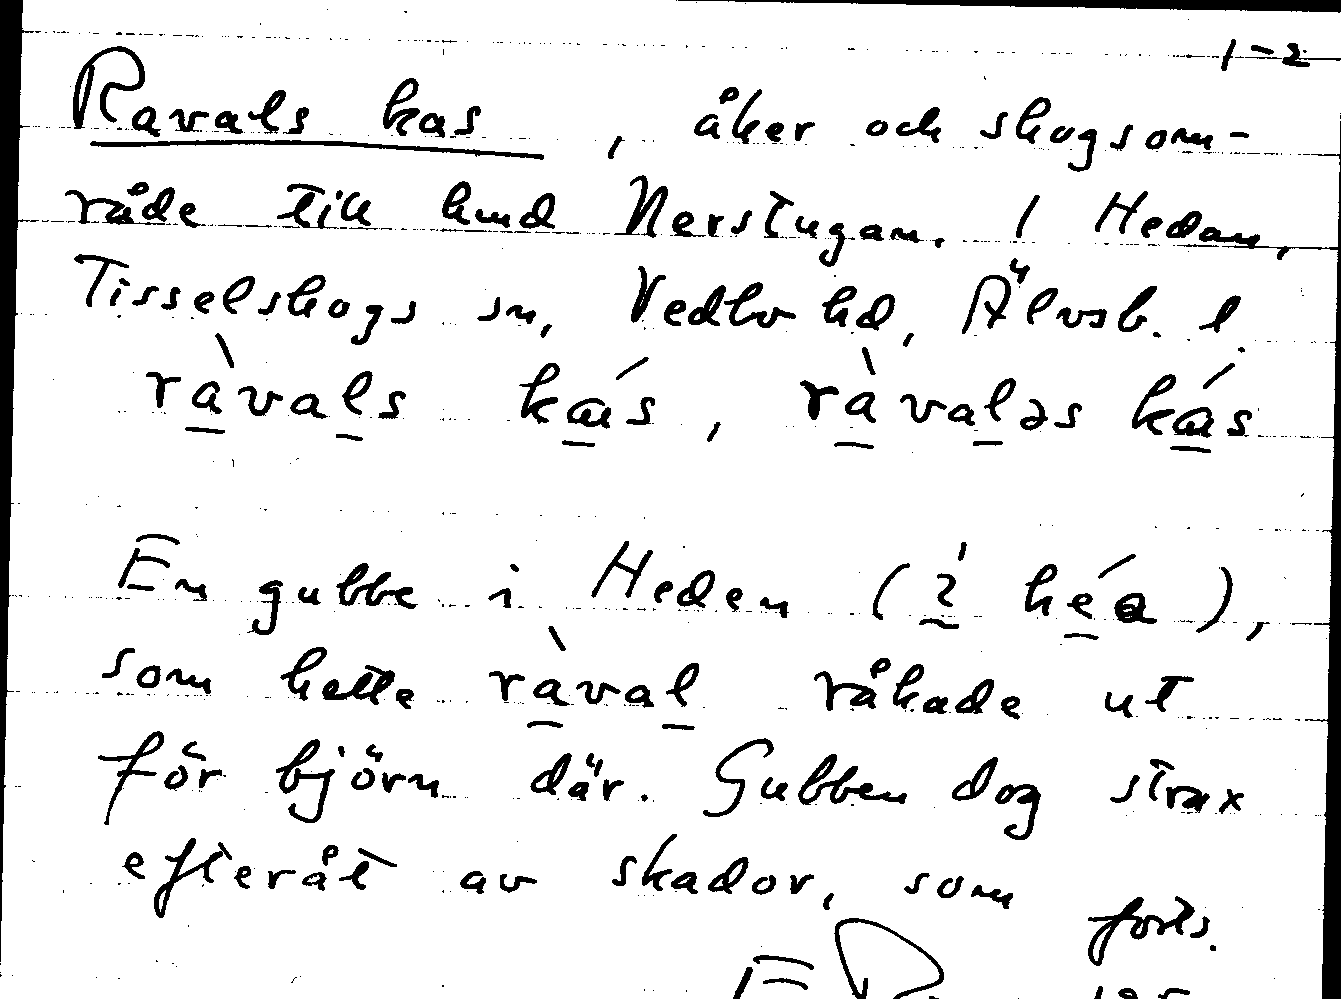 1-2
Ravals kas, åker och skogsom-
råde till hmd Nerstugan. 1 Hedan,
Tisselskogs sn, Vedbo hd, Älvsb. l.
ràvals kás, ràvaləs kás
En gubbe i Heden (i héa),
som hette ràval råkade ut
för björn där. Gubben dog strax
efteråt av skador, som forts.